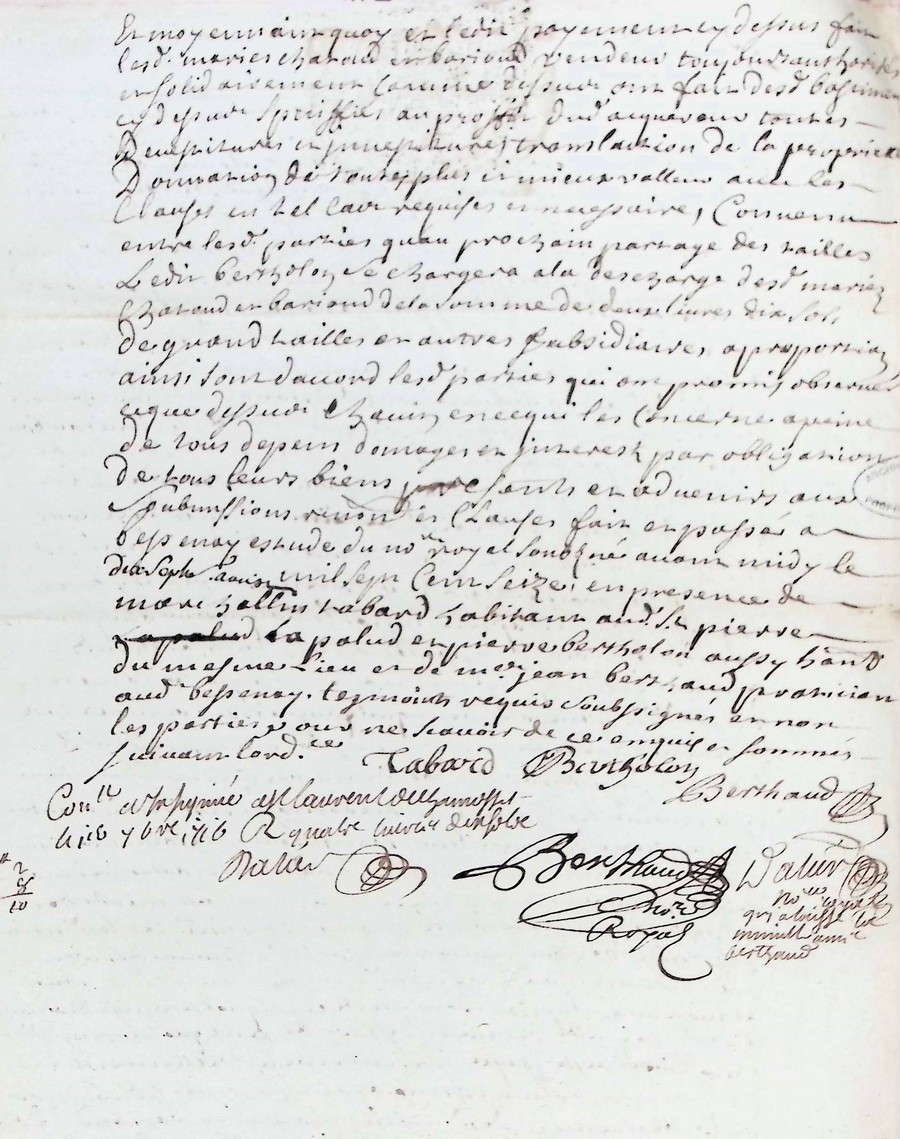 Et moyennant quoy et ledit payement cy dessus fait
lesd. maries chataud et bariond vendeur toujours authorises
et solidairement comme dessus ont fait desd. bastimens
cy dessus speciffies au proffit dud. acquereur toutes
devestitures investitures translaction de la propriete
Donnation de toutes plus et mieux valleur avec les
Clauses en tel cas requises et necessaires, Convenu
entre lesd. parties quau prochain partage des tailles
Ledit bertholon se chargera a la descharge desd. mariez
Chataud et bariond de la somme de deux livres dix sols
de grand tailles et autres subsidiaires a proportion
ainsi sont dacord lesd. parties qui ont promis observer
ce que dessus chacun en ce qui les Concerne a peine
de tous depens domages et interest par obligation
de tous leurs biens presents et advenirs aux
submissions renon.es Clauses fait et passé a
bessenay estude du no.re royal soussigné avant midy le
dix sept aoust mil sept Cent seize en presence de
tabard habitant aud. St pierre
la palud et pierre bertholon aussy h.ant
du mesme Lieu et de m.e jean berthaud praticien
aud. bessenay tesmoints requis soubsignés et non
les parties pour ne scavoir de ce enquis et sommés
suivant lord.ce
Tabard Bertholon
Berthaud
Con.lé et a St laurent de chamousset
le 7bre 1716 R quatre livres
Ratier
2
10
Berthaud
no.re
Royal
Ratier
no.re royal
qui a la
minutte
berthaud